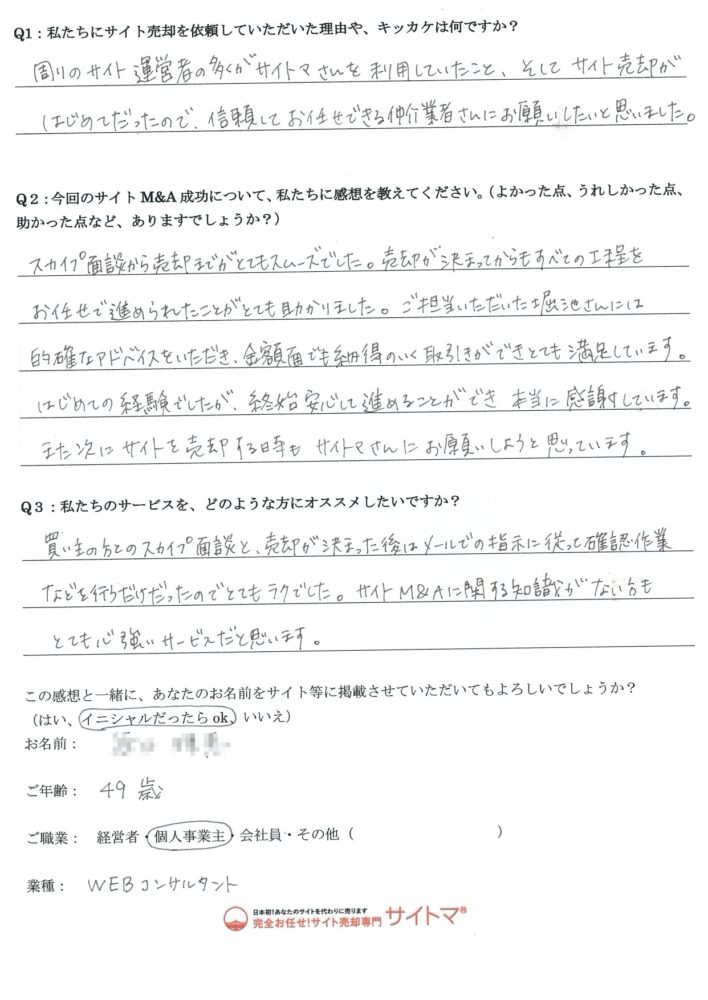 Q1：私たちにサイト売却を依頼していただいた理由や、キッカケは何ですか？
周りのサイト運営者の多くがサイトマさんを利用していたこと、そしてサイト売却が
はじめてだったので、信頼してお任せできる仲介業者さんにお願いしたいと思いました。
Q2：今回のサイトM&A成功について、私たちに感想を教えてください。（よかった点、うれしかった点、
助かった点など、ありますでしょうか？）
スカイプ面談から売却までがとてもスムーズでした。売却が決まってからもすべての工程を
お任せで進められたことがとても助かりました。ご担当いただいた堀池さんには
的確なアドバイスをいただき、金額面でも納得のいく取引きができとても満足しています。
はじめての経験でしたが、終始安心して進めることができ本当に感謝しています。
また次にサイトを売却する時もサイトマさんにお願いしようと思っています。
Q3：私たちのサービスを、どのような方にオススメしたいですか？
買い主の方とのスカイプ面談と、売却が決まった後はメールでの指示に従って確認作業
などを行うだけだったのでとてもラクでした。サイトM&Aに関する知識がない方も
とても心強いサービスだと思います。
この感想と一緒に、あなたのお名前をサイト等に掲載させていただいてもよろしいでしょうか？
（はい、イニシャルだったらok、いいえ）
お名前：
ご年齢： 49歳
ご職業： 経営者・個人事業主・会社員・その他（ ）
業種： WEBコンサルタント
日本初！あなたのサイトを代わりに売ります
完全お任せ！サイト売却専門 サイトマ®